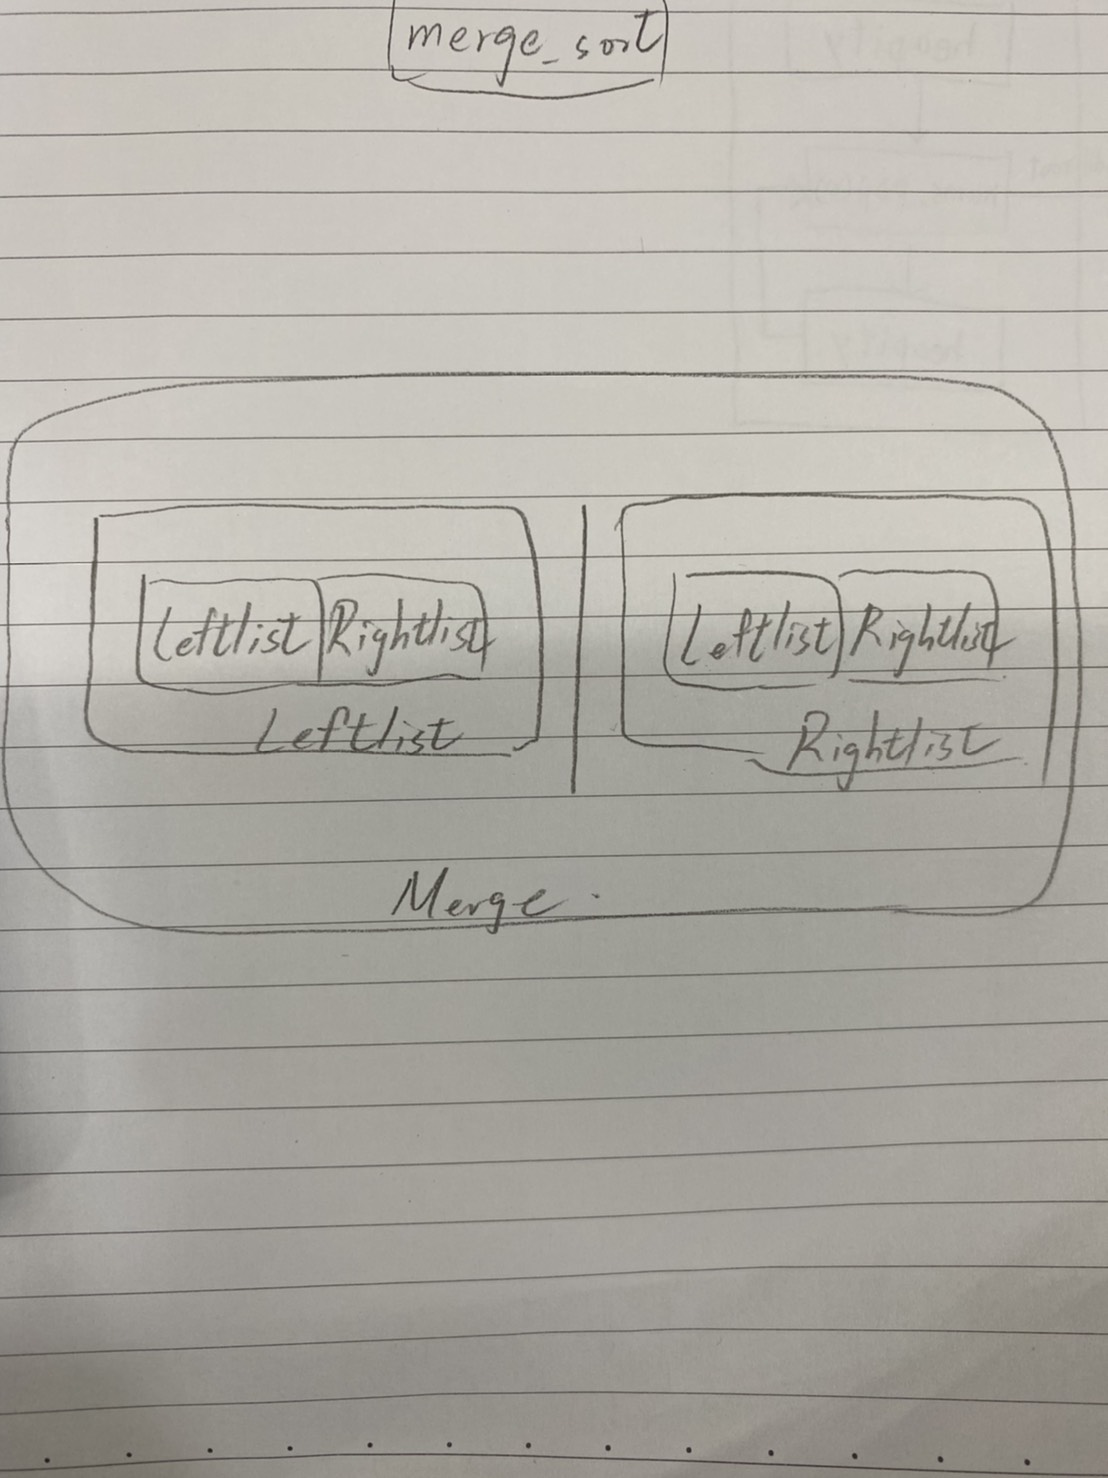 merge_sort
Leftlist Rightlist Leftlist Rightlist
Leftlist Rightlist
Merge.